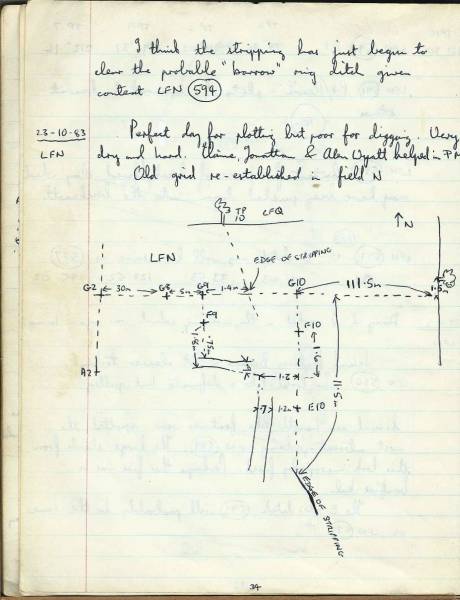 I think the stripping has just begun to
clear the probable "barrow" ring ditch given
context LFN 594
23-10-83 Perfect day for plotting but poor for digging. Very
LFN dry and hard. Elaine, Jonathan & Alan Wyatt helped in PM
Old grid re-established in field N
TP 10 LFQ
↑N
LFN
EDGE OF STRIPPING
G2 30m G8 5m G9 1.4m G10 111.5m 1.5m
F9 F10
1.8m .75m 1.6m
A2
1.2 11.5m
.7 1.2m E10
EDGE OF STRIPPING
34